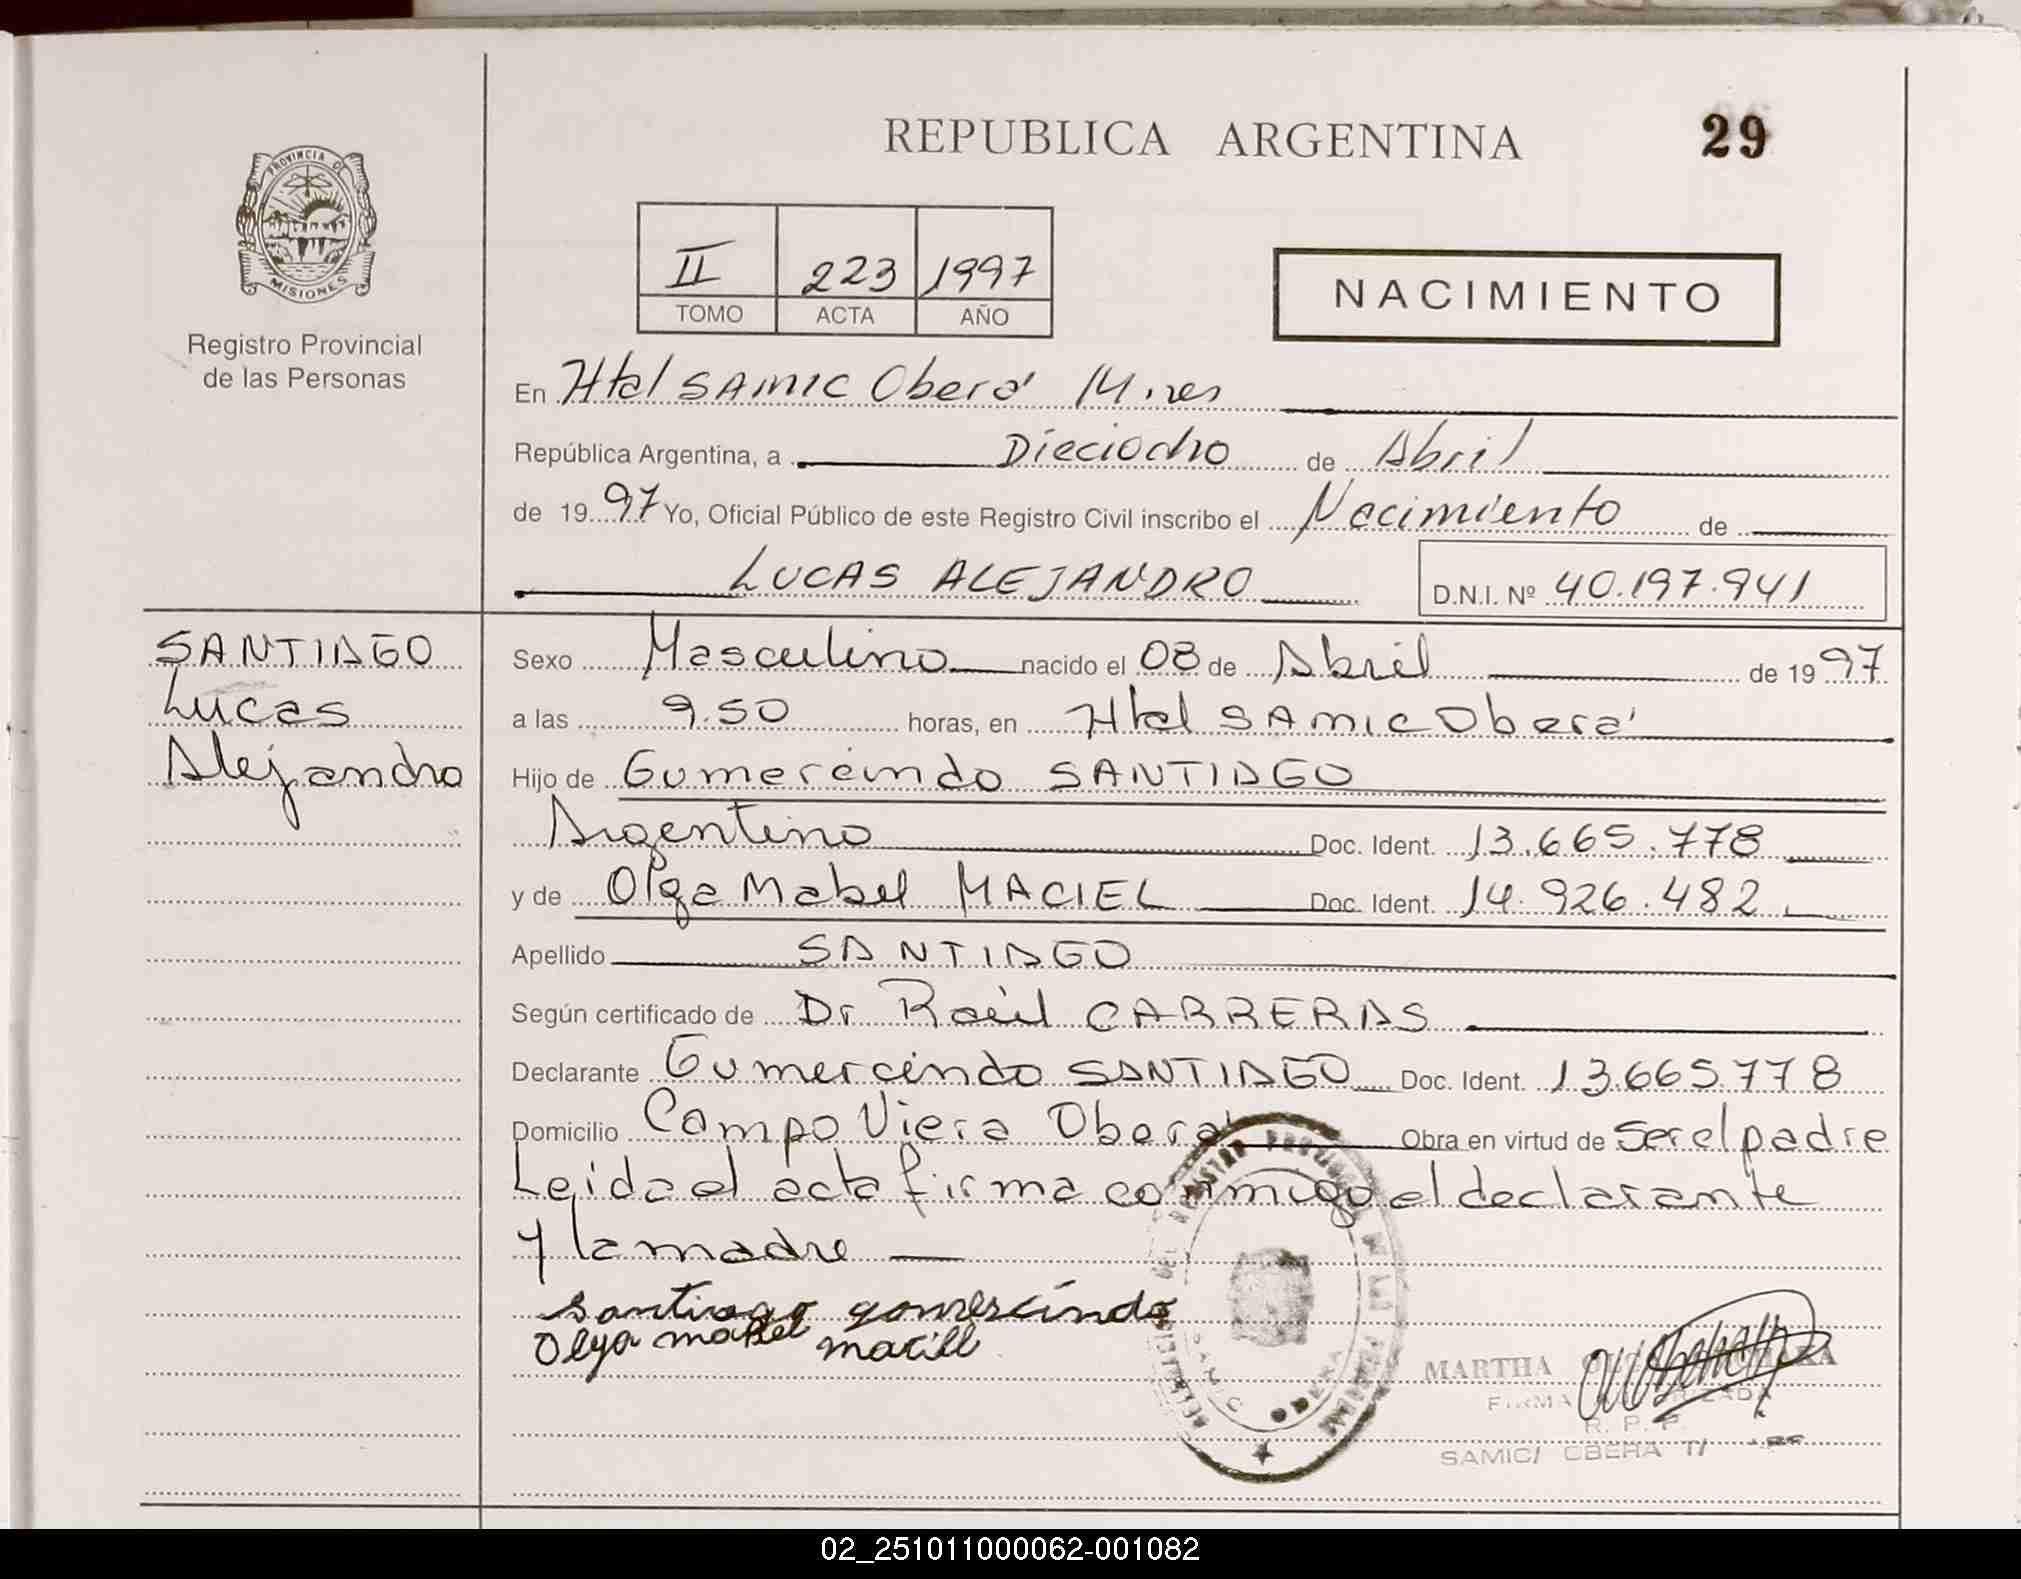 REPUBLICA ARGENTINA
29
PROVINCIA DE
MISIONES
Registro Provincial
de las Personas
II 223 1997
TOMO ACTA AÑO
NACIMIENTO
En Htal SAMIC Oberá M.nes
República Argentina, a Dieciocho de Abril
de 1997 Yo, Oficial Público de este Registro Civil inscribo el Nacimiento de
LUCAS ALEJANDRO D.N.I. Nº 40.197.941
SANTIAGO
Lucas
Alejandro
Sexo Masculino nacido el 08 de Abril de 1997
a las 9.50 horas, en Htal SAMIC Oberá
Hijo de Gumercindo SANTIAGO
Argentino Doc. Ident. 13.665.778
y de Olga Mabel MACIEL Doc. Ident. 14.926.482
Apellido SANTIAGO
Según certificado de Dr Raúl CARRERAS
Declarante Gumercindo SANTIAGO Doc. Ident. 13.665.778
Domicilio Campo Viera Oberá Obra en virtud de Ser el padre
Leida el acta firma conmigo el declarante
y la madre
santiago gomercindo
Olga mabel maciell
MARTHA
FIRMA
R. P. P.
SAMIC/ OBERA
02_251011000062-001082